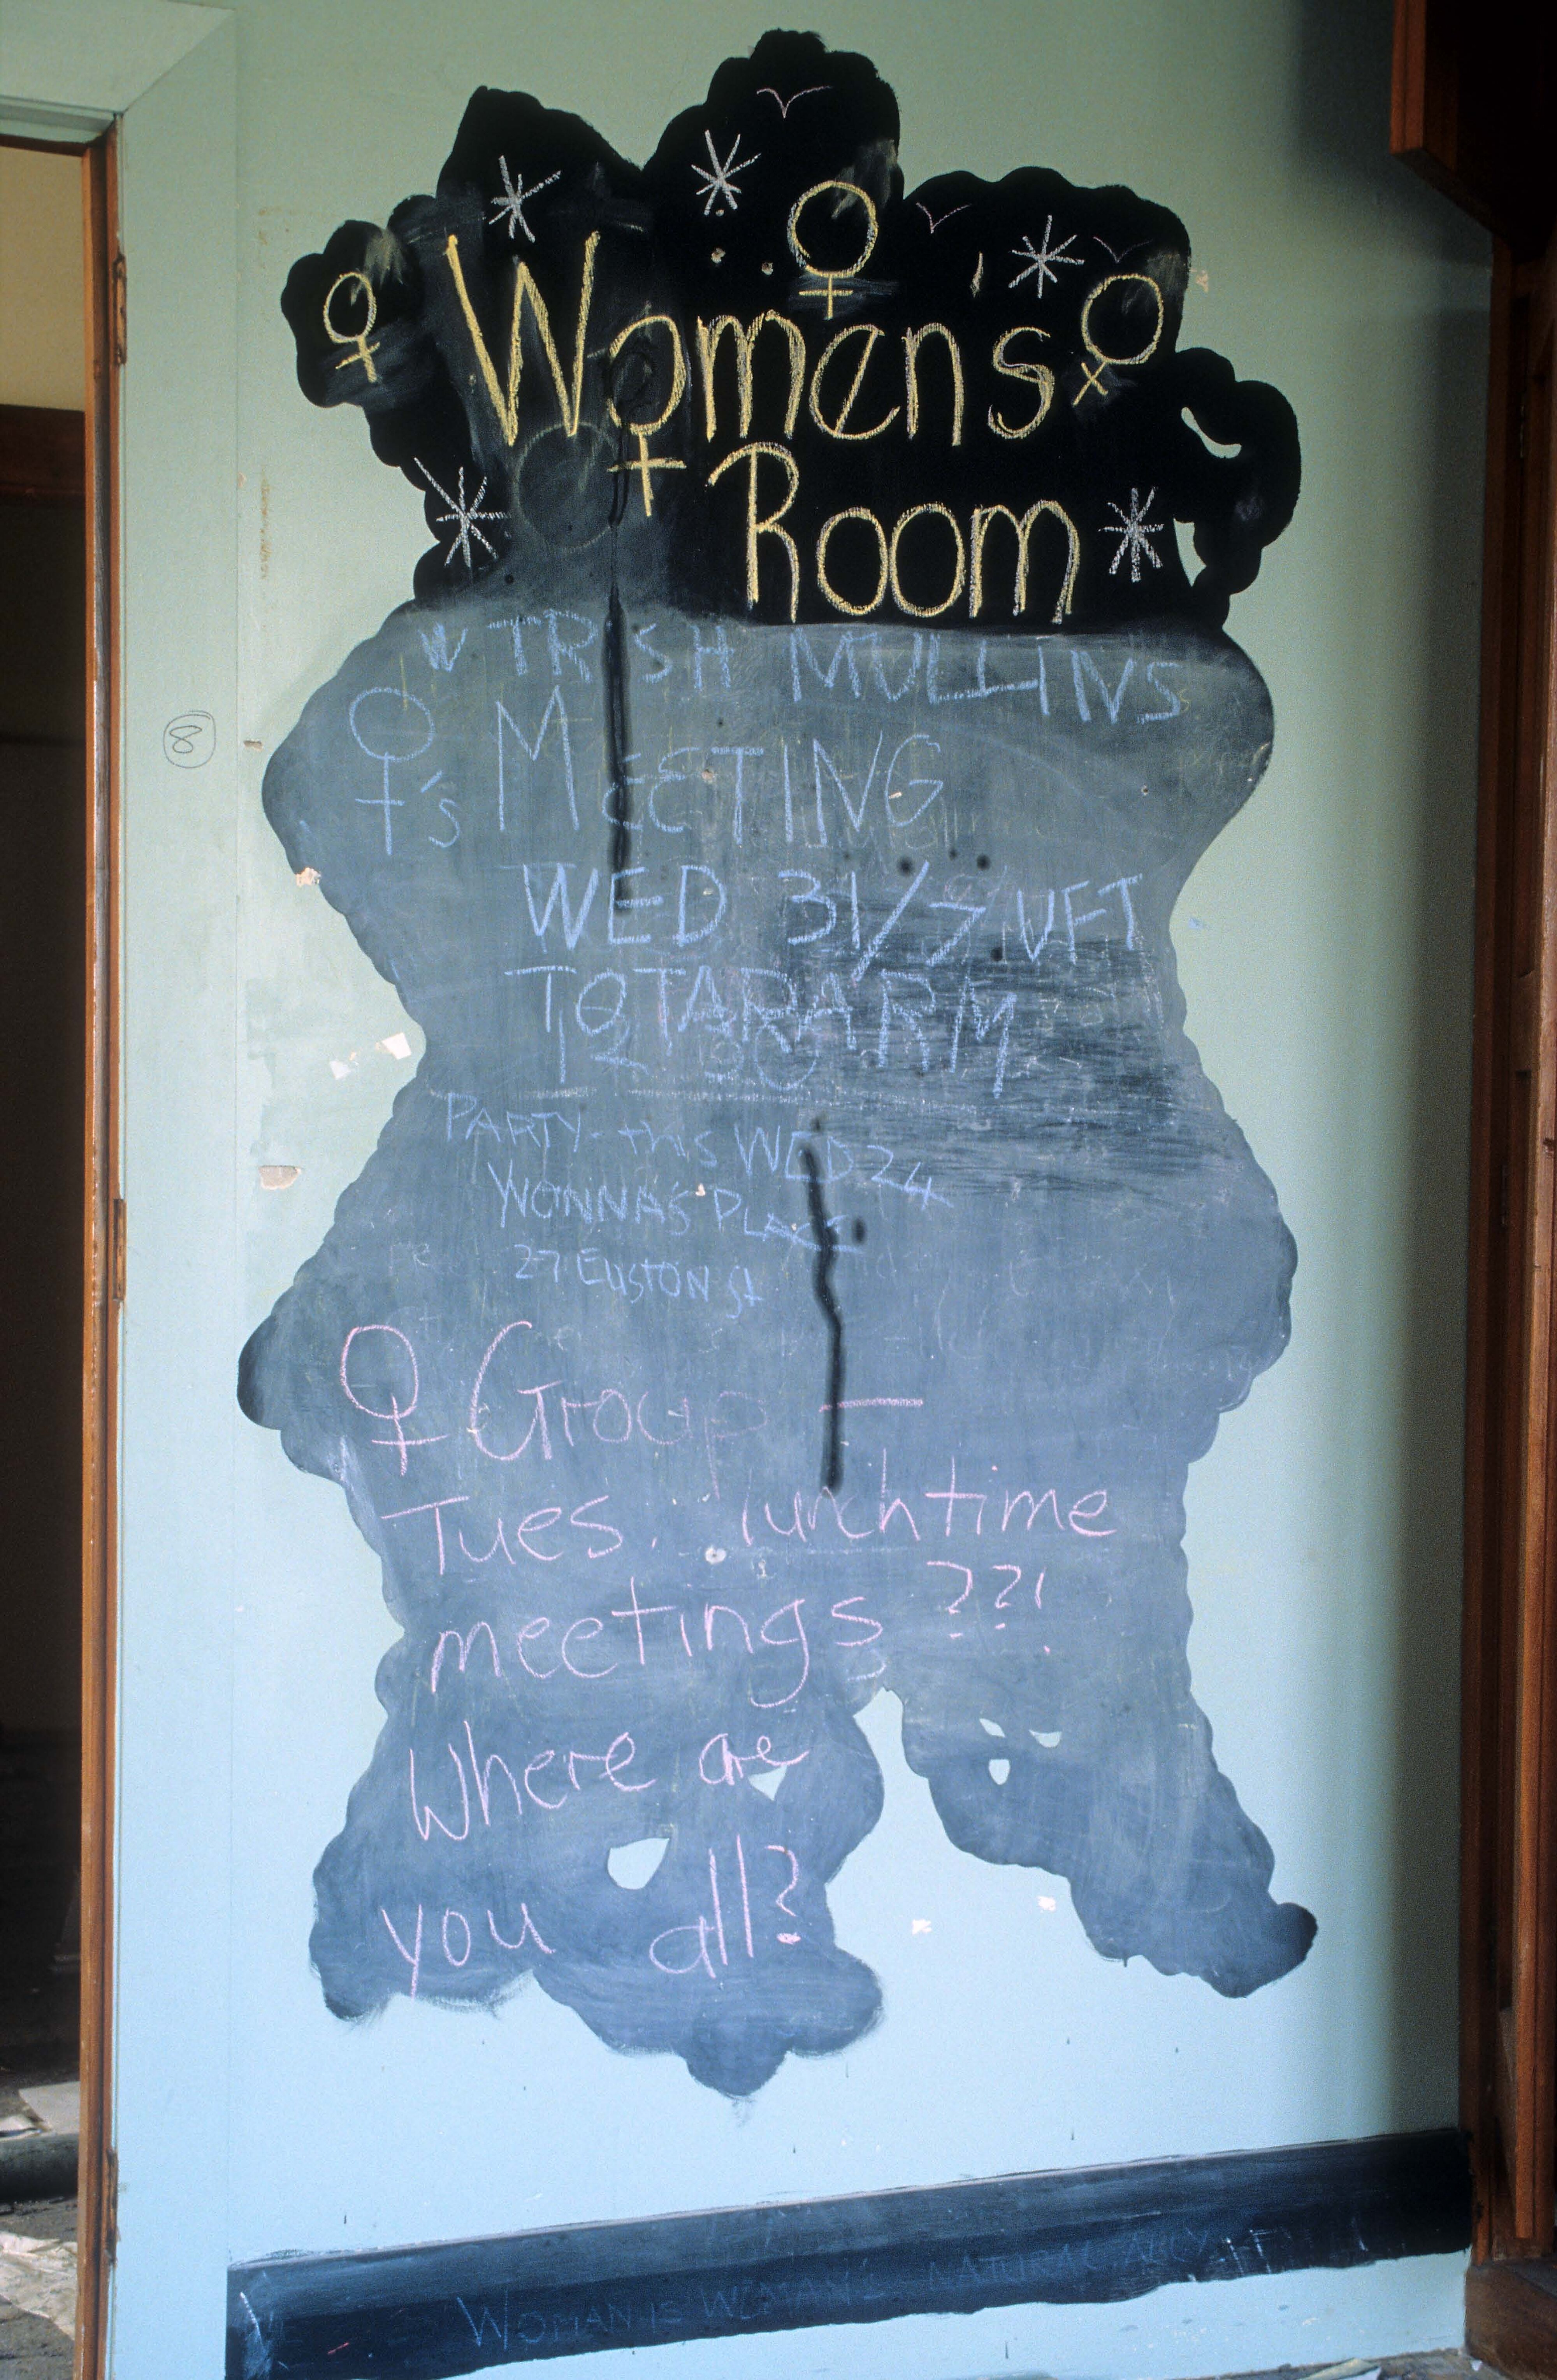 Womens
Room
W TRISH MULLINS
♀'s MEETING
WED 31/7 NFT
TOTARA RM
12
PARTY - this WED 24
27 EUSTON St
♀ Group —
Tues. lunchtime
meetings ??!
Where are
you all?
8
WOMAN IS WOMAN'S NATURAL ALLY